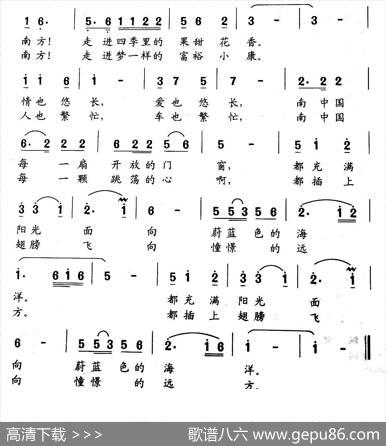 1 6· | 5· 6 1 1 2 2 | 5 6 2 | 3 - | 3 - |
南方! 走进四季里的 果甜 花 香。
南方! 走进梦一样的 富裕 小 康。
1 1 6 | 1 - | 3 7 5 | 6 - | 2· 2 2 |
情也悠 长, 爱也悠 长, 南中国
人也繁 忙, 车也繁 忙, 南中国
6· 2 2 2 | 2 2 2 | 5 - | 5 - | 5 1 2 |
每 一扇 开放的门 窗, 都充满
每 一颗 跳荡的心 啊, 都插上
3 3 1 | 2· 1 | 6 - | 5 5 5 3 5 0 | 2· 1 2 |
阳光 面 向 蔚蓝 色的 海
翅膀 飞 向 憧憬 的 远
1· 6 1 6 | 5 - | 5 1 2 | 3 3 1 | 2· 1 |
洋。 都充满 阳光 面
方。 都插上 翅膀 飞
6 - | 5 5 5 3 5 0 | 2· 1 6 | 1 - | 1 - ‖
向 蔚蓝 色的 海 洋。
向 憧憬 的 远 方
高清下载 >>> 歌谱八六 www.gepu86.com